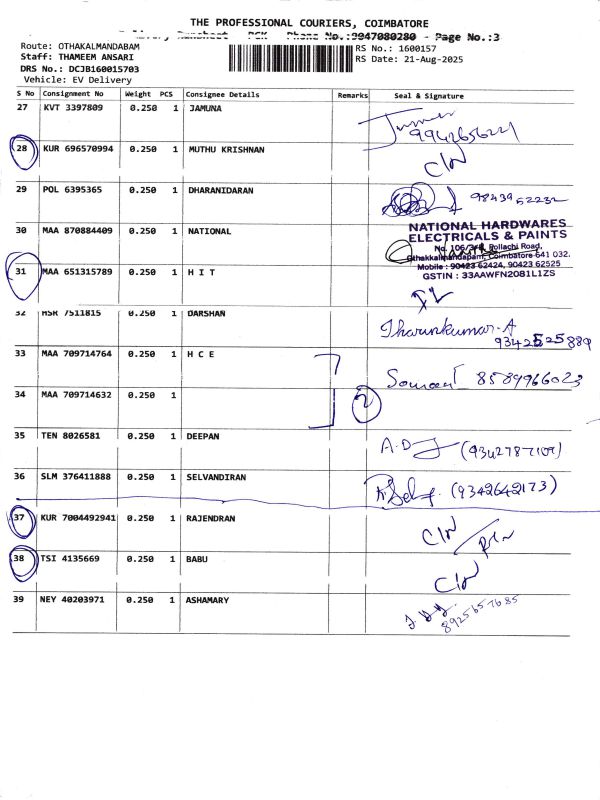 THE PROFESSIONAL COURIERS, COIMBATORE
Phone No.:9047080280 - Page No.:3
Route: OTHAKALMANDABAM
RS No.: 1600157
Staff: THAMEEM ANSARI
RS Date: 21-Aug-2025
DRS No.: DCJB160015703
Vehicle: EV Delivery
S No Consignment No Weight PCS Consignee Details Remarks Seal & Signature
27 KVT 3397809 0.250 1 JAMUNA
9942656221
28 KUR 696570994 0.250 1 MUTHU KRISHNAN
29 POL 6395365 0.250 1 DHARANIDARAN 9843952232
30 MAA 870884409 0.250 1 NATIONAL
NATIONAL HARDWARES
ELECTRICALS & PAINTS
No. 106/3-4, Pollachi Road,
Othakkalmandapam, Coimbatore-641 032.
Mobile : 90423 62424, 90423 62525
GSTIN : 33AAWFN2081L1ZS
31 MAA 651315789 0.250 1 H I T
32 HSR 7511815 0.250 1 DARSHAN
Tharunkumar.A
9342525889
33 MAA 709714764 0.250 1 H C E
8589966023
34 MAA 709714632 0.250 1
2
35 TEN 8026581 0.250 1 DEEPAN
A.D (9342787109)
36 SLM 376411888 0.250 1 SELVANDIRAN
(9342642173)
37 KUR 7004492941 0.250 1 RAJENDRAN
38 TSI 4135669 0.250 1 BABU
39 NEY 40203971 0.250 1 ASHAMARY
8925657685